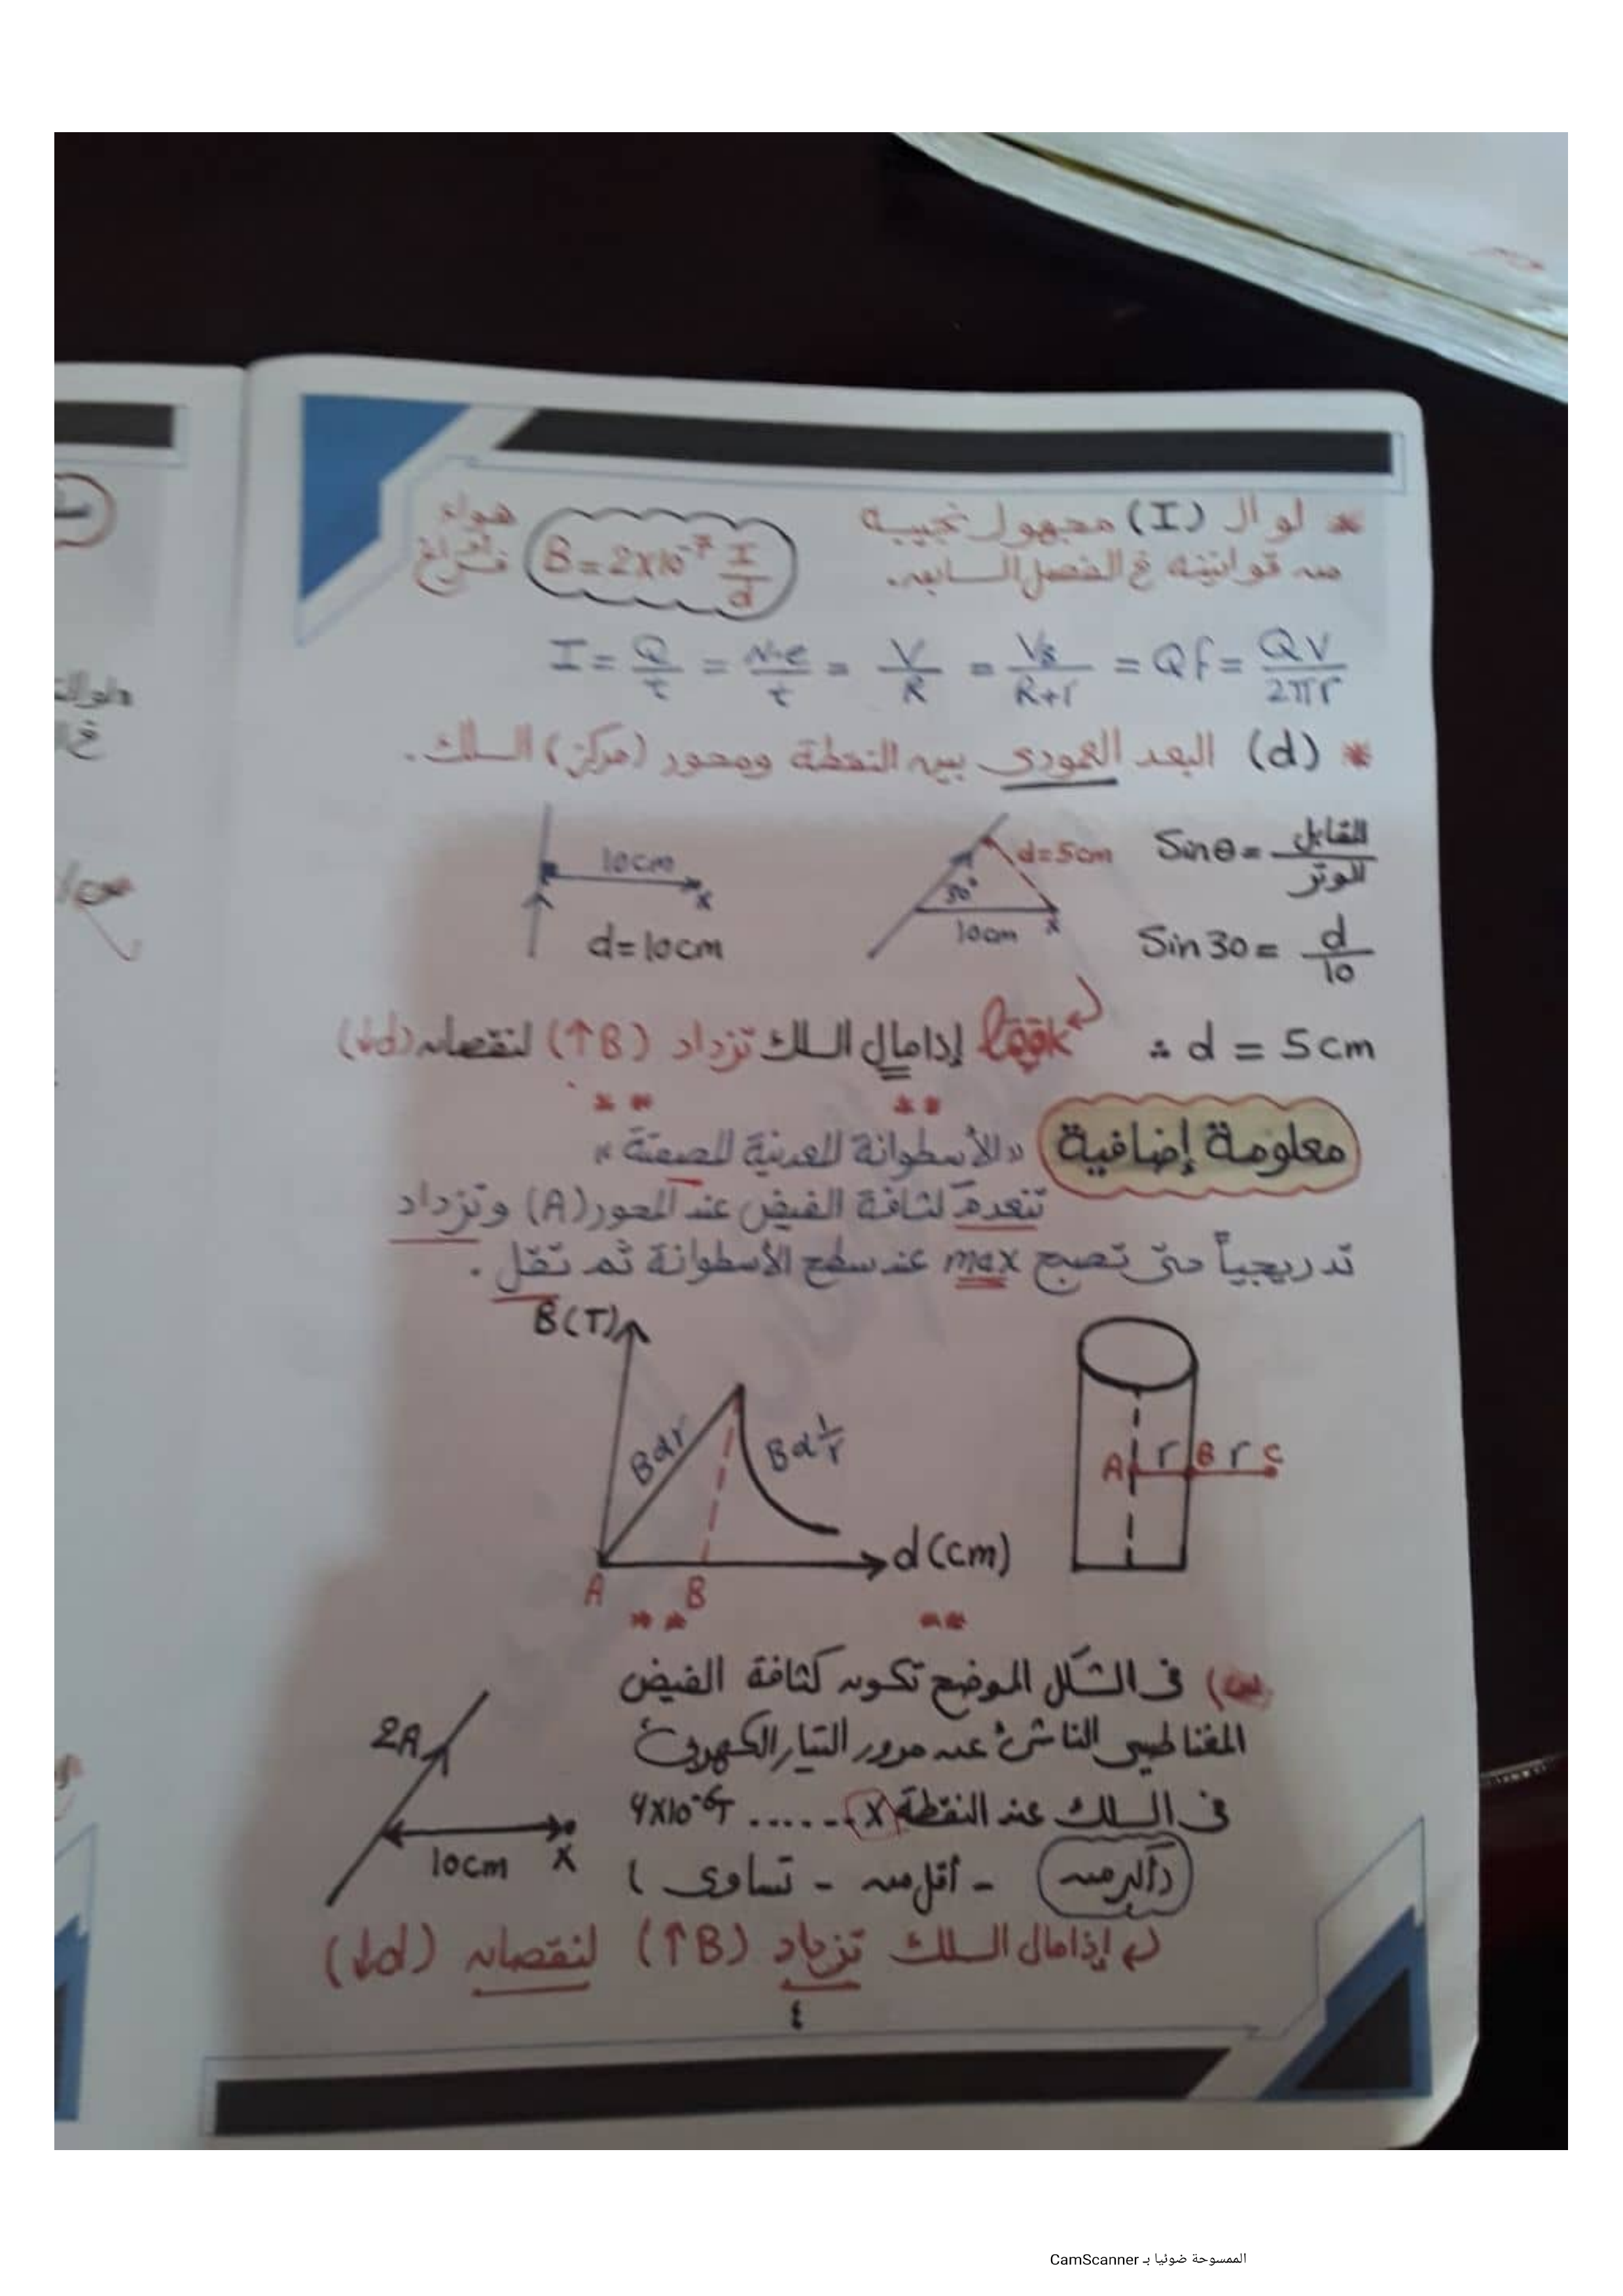 * لو ال (I) مجهول نجيبه
من قوانينه في الفصل السابق.
B = 2×10⁻⁷ I/d
هواء
أو فراغ
I = Q/t = N·e/t = V/R = V_B/(R+r) = Qf = QV/2πr
* (d) البعد العمودى بين النقطة ومحور (مركز) السلك.
10cm
x
d=10cm
d=5cm
30°
10cm
x
Sinθ = المقابل/الوتر
Sin 30 = d/10
∴ d = 5cm
إذا مال السلك تزداد (B↑) لنقصان (d↓)
** **
معلومة إضافية
«الأسطوانة المعدنية المصمتة»
تنعدم كثافة الفيض عند المحور (A) وتزداد
تدريجياً حتى تصبح max عند سطح الأسطوانة ثم تقل.
B(T)
Bαr
Bα1/r
d(cm)
A B
A r B r C
** **
س) فى الشكل الموضح تكون كثافة الفيض
المغناطيسى الناشئ عن مرور التيار الكهربى
فى السلك عند النقطة X ...... 4×10⁻⁶T
(أكبر من - أقل من - تساوى)
2A
10cm
X
إذا مال السلك تزداد (B↑) لنقصان (d↓)
٤
الممسوحة ضوئيا بـ CamScanner